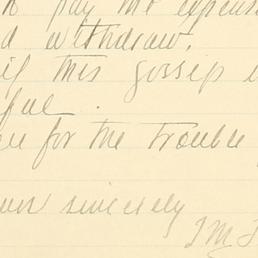 pay the expens
d withdraw.
if this gossip i
ful.
for the trouble
sincerely